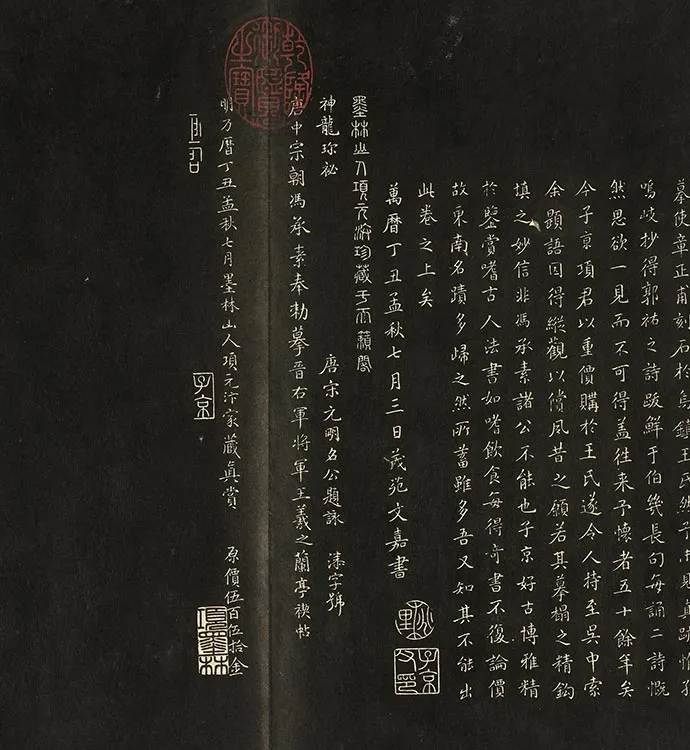 摹使章正甫刻石於烏鎮王氏然予未見真跡惟孔
鳴岐抄得郭祐之詩跋鮮于伯幾長句每誦二詩慨
然思欲一見而不可得蓋往来予懷者五十餘年矣
今子京項君以重價購於王氏遂令人持至吳中索
余題語因得縱觀以償夙昔之願若其摹搨之精鉤
填之妙信非馮承素諸公不能也子京好古博雅精
於鑒賞嗜古人法書如嗜飲食每得奇書不復論價
故東南名蹟多歸之然所蓄雖多吾又知其不能出
此卷之上矣
萬曆丁丑孟秋七月三日茂苑文嘉書
墨林山人項元汴珍藏于天籟閣
神龍珍祕 唐宋元明名公題詠 漆字號
唐中宗朝馮承素奉勅摹晉右軍將軍王羲之蘭亭禊帖
明万曆丁丑孟秋七月墨林山人項元汴家藏真賞 原價伍百伍拾金
乾隆御覽之寶
子京